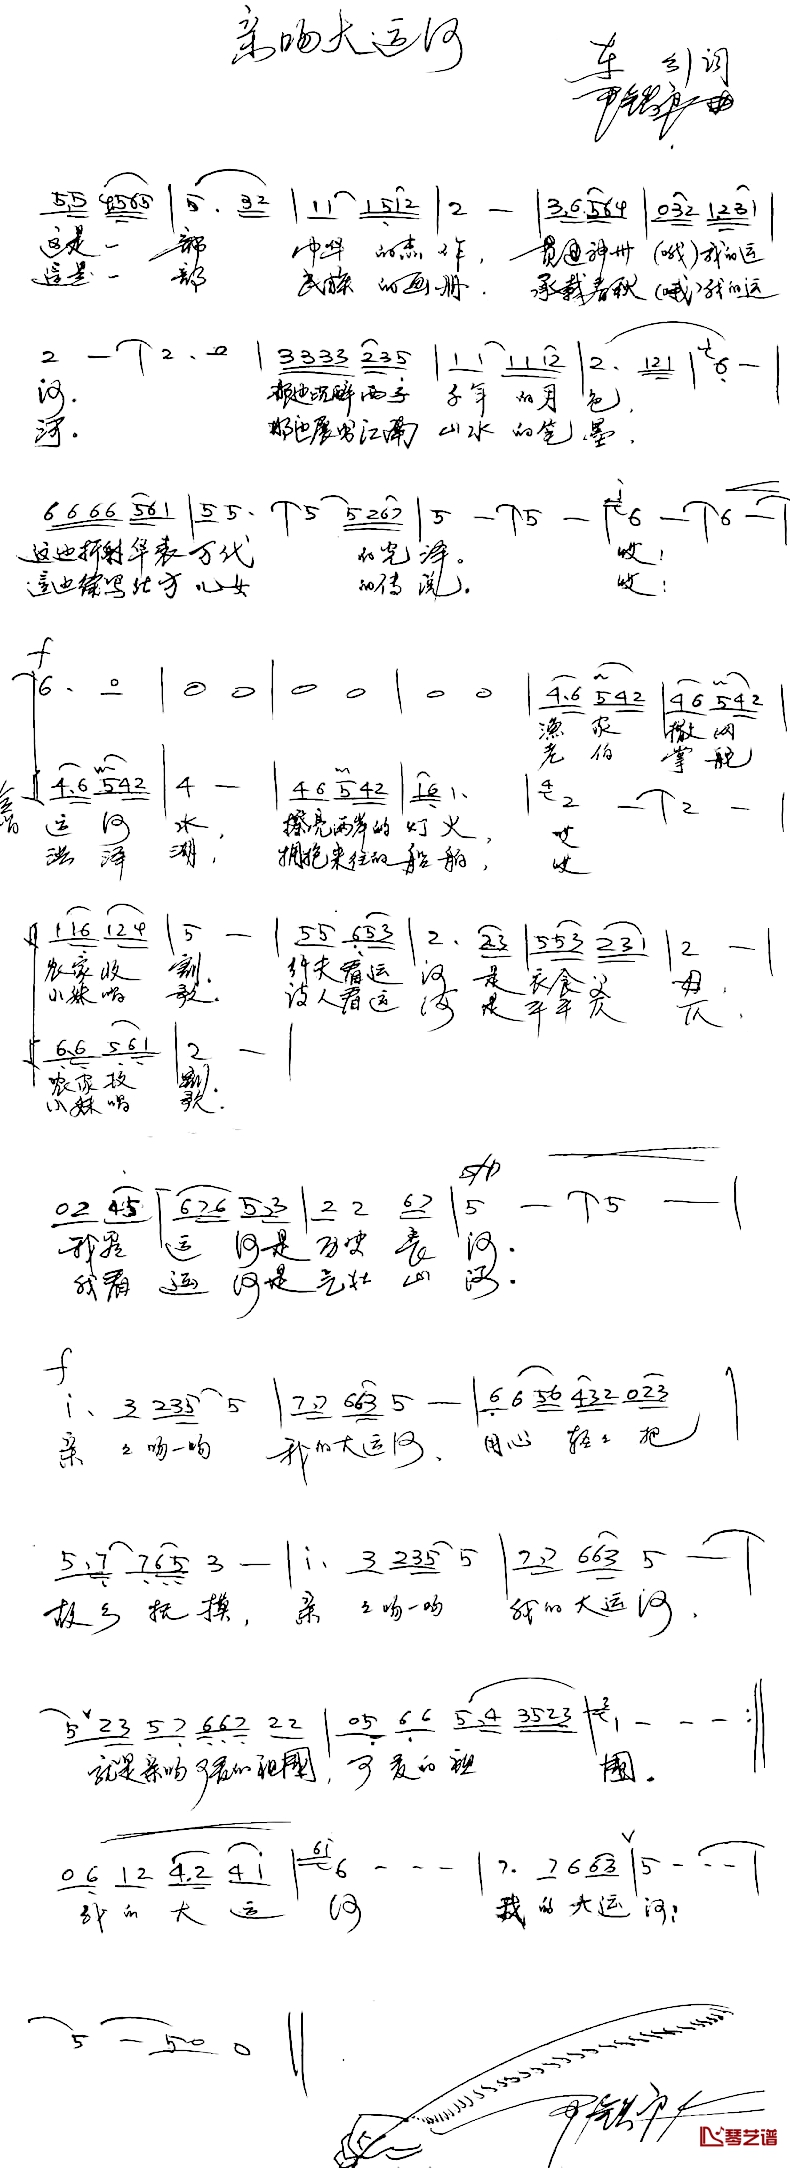 亲吻大运河
车 引 词
尹铁良 曲
5.5 4565 | 5. 32 | 11 1512 | 2 - | 3.6 564 | 032 1231 |
这是一 部 中华 的杰作， 贯通神州 (哦)我的运
这是一 部 民族 的画册. 承载春秋 (哦)我的运
2 - 2. 0 | 3333 235 | 11 1112 | 2. 121 | 6 - |
河. 那边沉醉两 千年 的月 色,
河. 那边展 江南 山水 的笔 墨,
6666 561 | 55. 5 5267 | 5 - 5 - 6 - 6 -
这边折射华表万代 的光泽。 哎!
这边续写 女 的传说. 哎!
f
6. 0 | 0 0 | 0 0 | 0 0 | 4.6 542 | 46 542 |
渔 家 撒 网
老 伯 掌 舵
4.6 542 | 4 - | 46 542 | 161. | 2 - 2 - |
运 河 水， 擦亮两岸的灯火， 哎
洪 泽 湖， 拥抱来往的船舶， 哎
116 124 | 5 - | 55 653 | 2. 23 | 553 231 | 2 - |
农家收 割. 纤夫看运 河 是 衣食 父 母,
小妹唱 歌. 诗人看运 河 是 平平仄 仄,
6.6 561 | 2 - |
农家收 割.
小妹唱 歌.
02 45 | 676 5.3 | 22 67 | 5 - 5 - |
我看 运 河是 历史 长 河.
我看 运 河是 气壮 山 河.
f
i. 3 235 5 | 7.7 663 5 - | 66 56 432 023 |
亲 亲吻一吻 我的大运河, 用心 轻轻 把
5.7 765 3 - | i. 3 235 5 | 7.7 663 5 - |
故乡 抚摸， 亲 亲吻一吻 我的大运河,
5 23 57 667 22 | 05 66 5.4 3523 | 1 - - - :‖
就是亲吻可爱的祖国, 可爱的祖 国.
06 12 4.2 4i | 6 - - - | 7. 7663 | 5 - - - |
我的 大 运 河 我的大运河!
5 - 50 0 ‖
尹铁良
琴艺谱